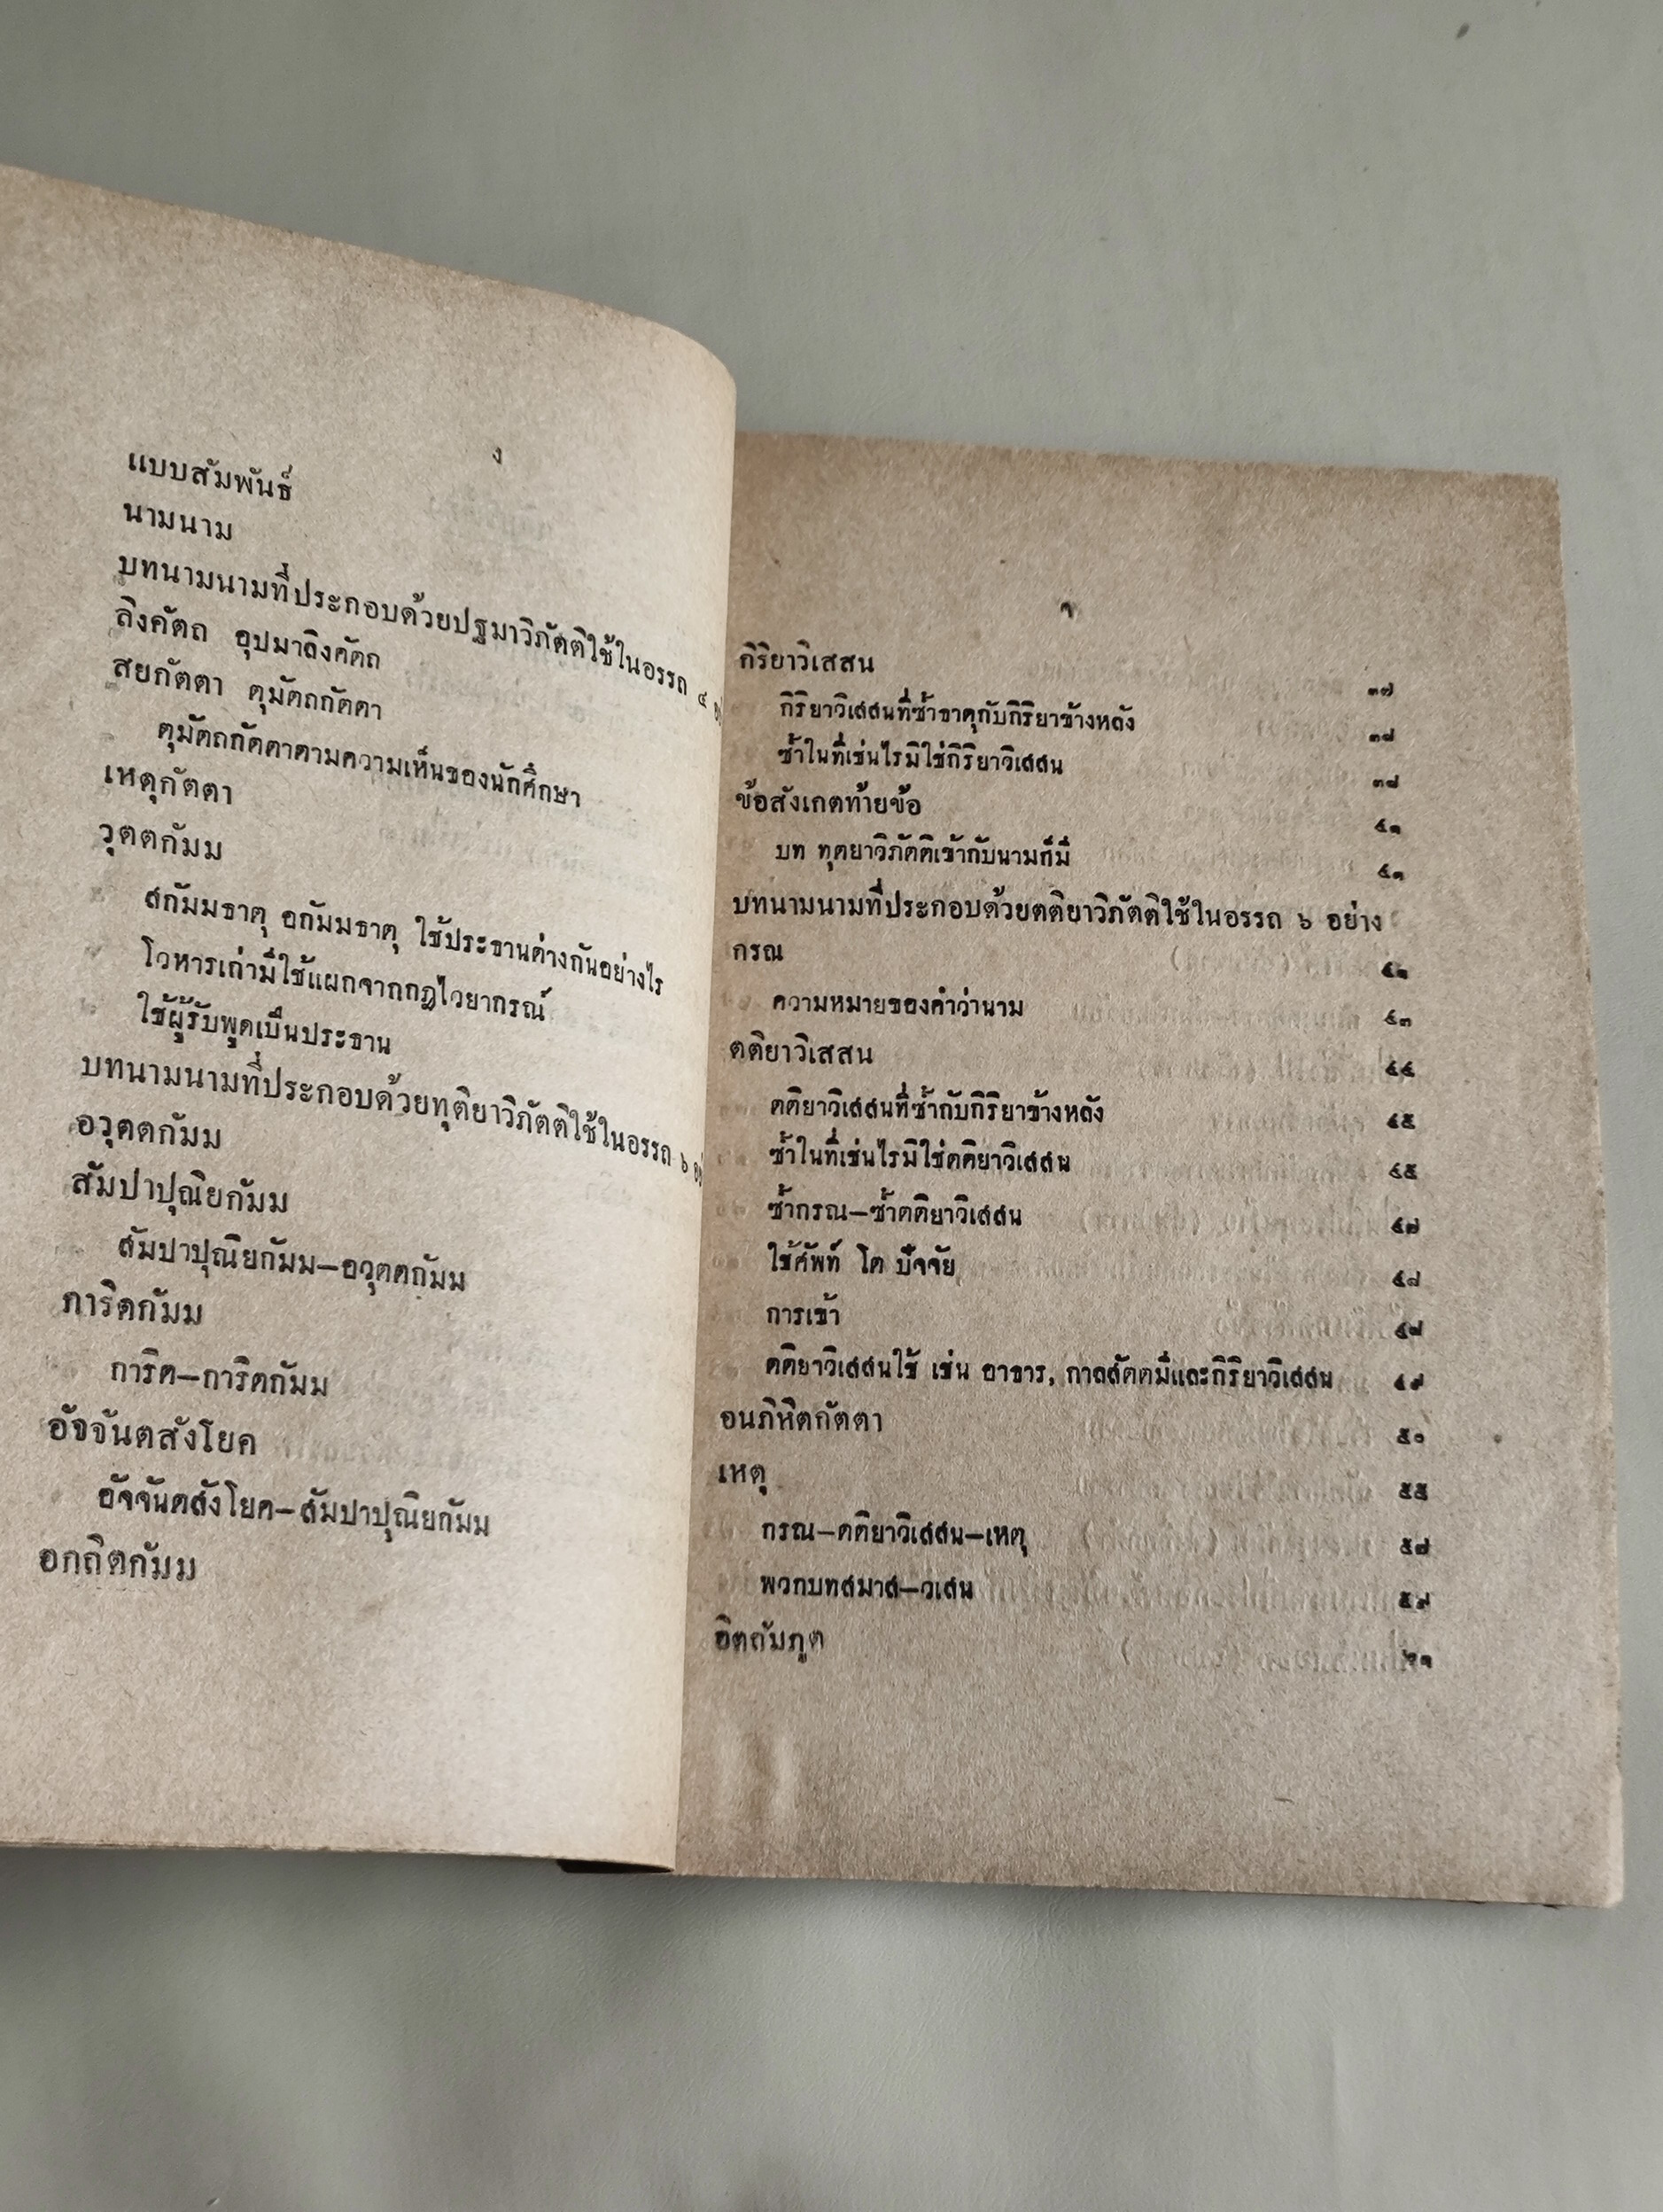 ง
แบบสัมพันธ์
นามนาม
บทนามนามที่ประกอบด้วยปฐมาวิภัตติใช้ในอรรถ ๔
ลิงคัตถ อุปมาลิงคัตถ
สยกัตตา ตุมัตถกัตตา
ตุมัตถกัตตาตามความเห็นของนักศึกษา
เหตุกัตตา
วุตตกัมม
สกัมมธาตุ อกัมมธาตุ ใช้ประธานต่างกันอย่างไร
โวหารเก่ามีใช้แผกจากกฎไวยากรณ์
ใช้ผู้รับพูดเป็นประธาน
บทนามนามที่ประกอบด้วยทุติยาวิภัตติใช้ในอรรถ ๖
อวุตตกัมม
สัมปาปุณิยกัมม
สัมปาปุณิยกัมม—อวุตตกัมม
การิตกัมม
การิต—การิตกัมม
อัจจันตสังโยค
อัจจันตสังโยค—สัมปาปุณิยกัมม
อกถิตกัมม
กิริยาวิเสสน ๓๗
กิริยาวิเสสนที่ซ้ำธาตุกับกิริยาข้างหลัง ๓๘
ซ้ำในที่เช่นไรมิใช่กิริยาวิเสสน ๓๘
ข้อสังเกตท้ายข้อ ๔๑
บท ทุตยาวิภัตติเข้ากับนามก็มี ๔๑
บทนามนามที่ประกอบด้วยตติยาวิภัตติใช้ในอรรถ ๖ อย่าง
กรณ
ความหมายของคำว่านาม ๔๓
ตติยาวิเสสน ๔๔
ตติยาวิเสสนที่ซ้ำกับกิริยาข้างหลัง ๔๕
ซ้ำในที่เช่นไรมิใช่ตติยาวิเสสน ๔๕
ซ้ำกรณ—ซ้ำตติยาวิเสสน ๔๗
ใช้ศัพท์ โต ปัจจัย ๔๘
การเข้า
ตติยาวิเสสนใช้ เช่น อาธาร, กาลสัตตมีและกิริยาวิเสสน ๔๙
อนภิหิตกัตตา ๕๐
เหตุ ๕๕
กรณ—ตติยาวิเสสน—เหตุ
พวกบทสมาส—วเสน ๕๙
อิตถัมภูต